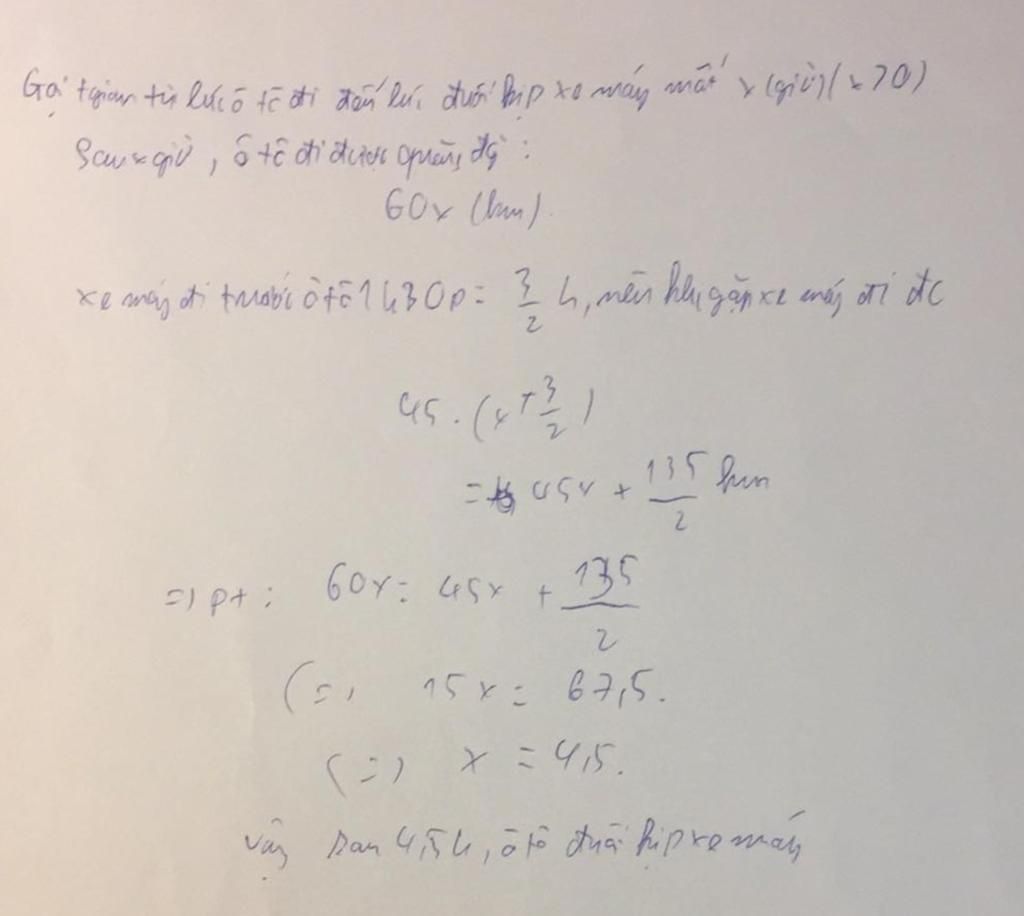 Gọi tgian từ lúc ô tô đi đến lúc đuổi kịp xe máy mất x (giờ) (x>0)
Sau x giờ, ô tô đi được quãng đg:
60x (km).
xe máy đi trước ô tô 1h30p = 3/2 h, nên khi gặp xe máy đi đc
45.(x+3/2)
= 45x + 135/2 km
=> pt: 60x = 45x + 135/2
(=) 15x = 67,5.
(=) x = 4,5.
Vậy sau 4,5h, ô tô đuổi kịp xe máy